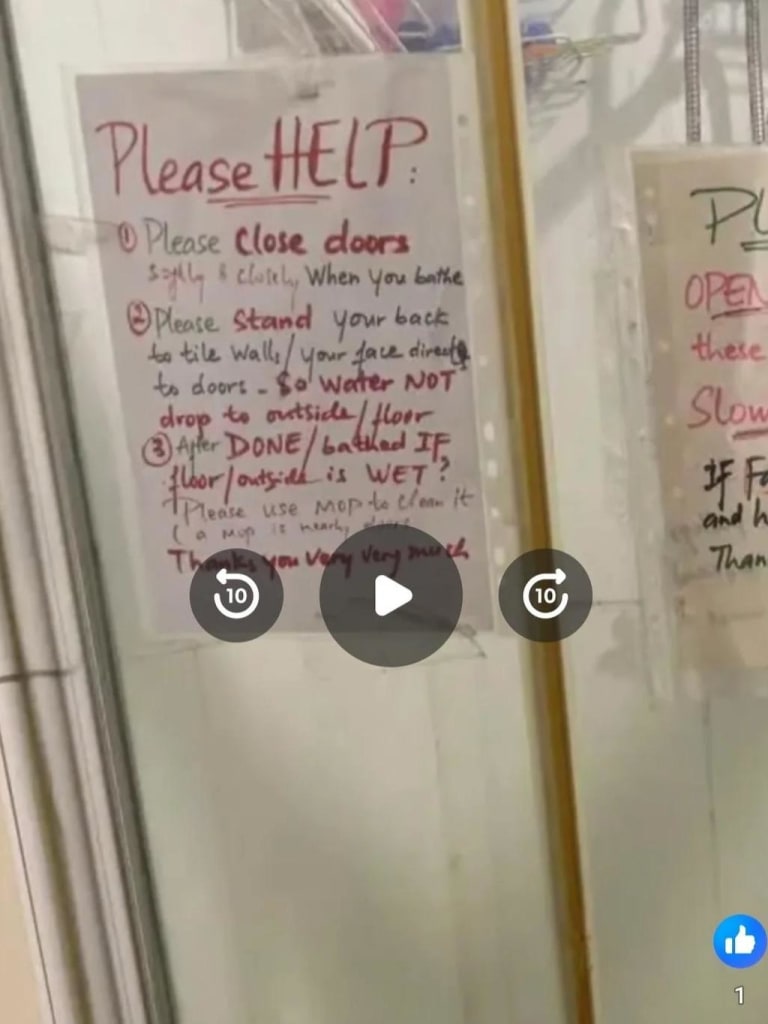 Please HELP:
① Please Close doors
softly & closely When you bathe
② Please Stand your back
to tile walls/your face directly
to doors - So Water NOT
drop to outside/floor
③ After DONE/bathed IF
floor/outside is WET?
Please use MOP to clean it
( a Mop is nearby
Thanks you Very Very much
PL
OPEN
these
Slow
IF Fa
and h
Than
10
10
1